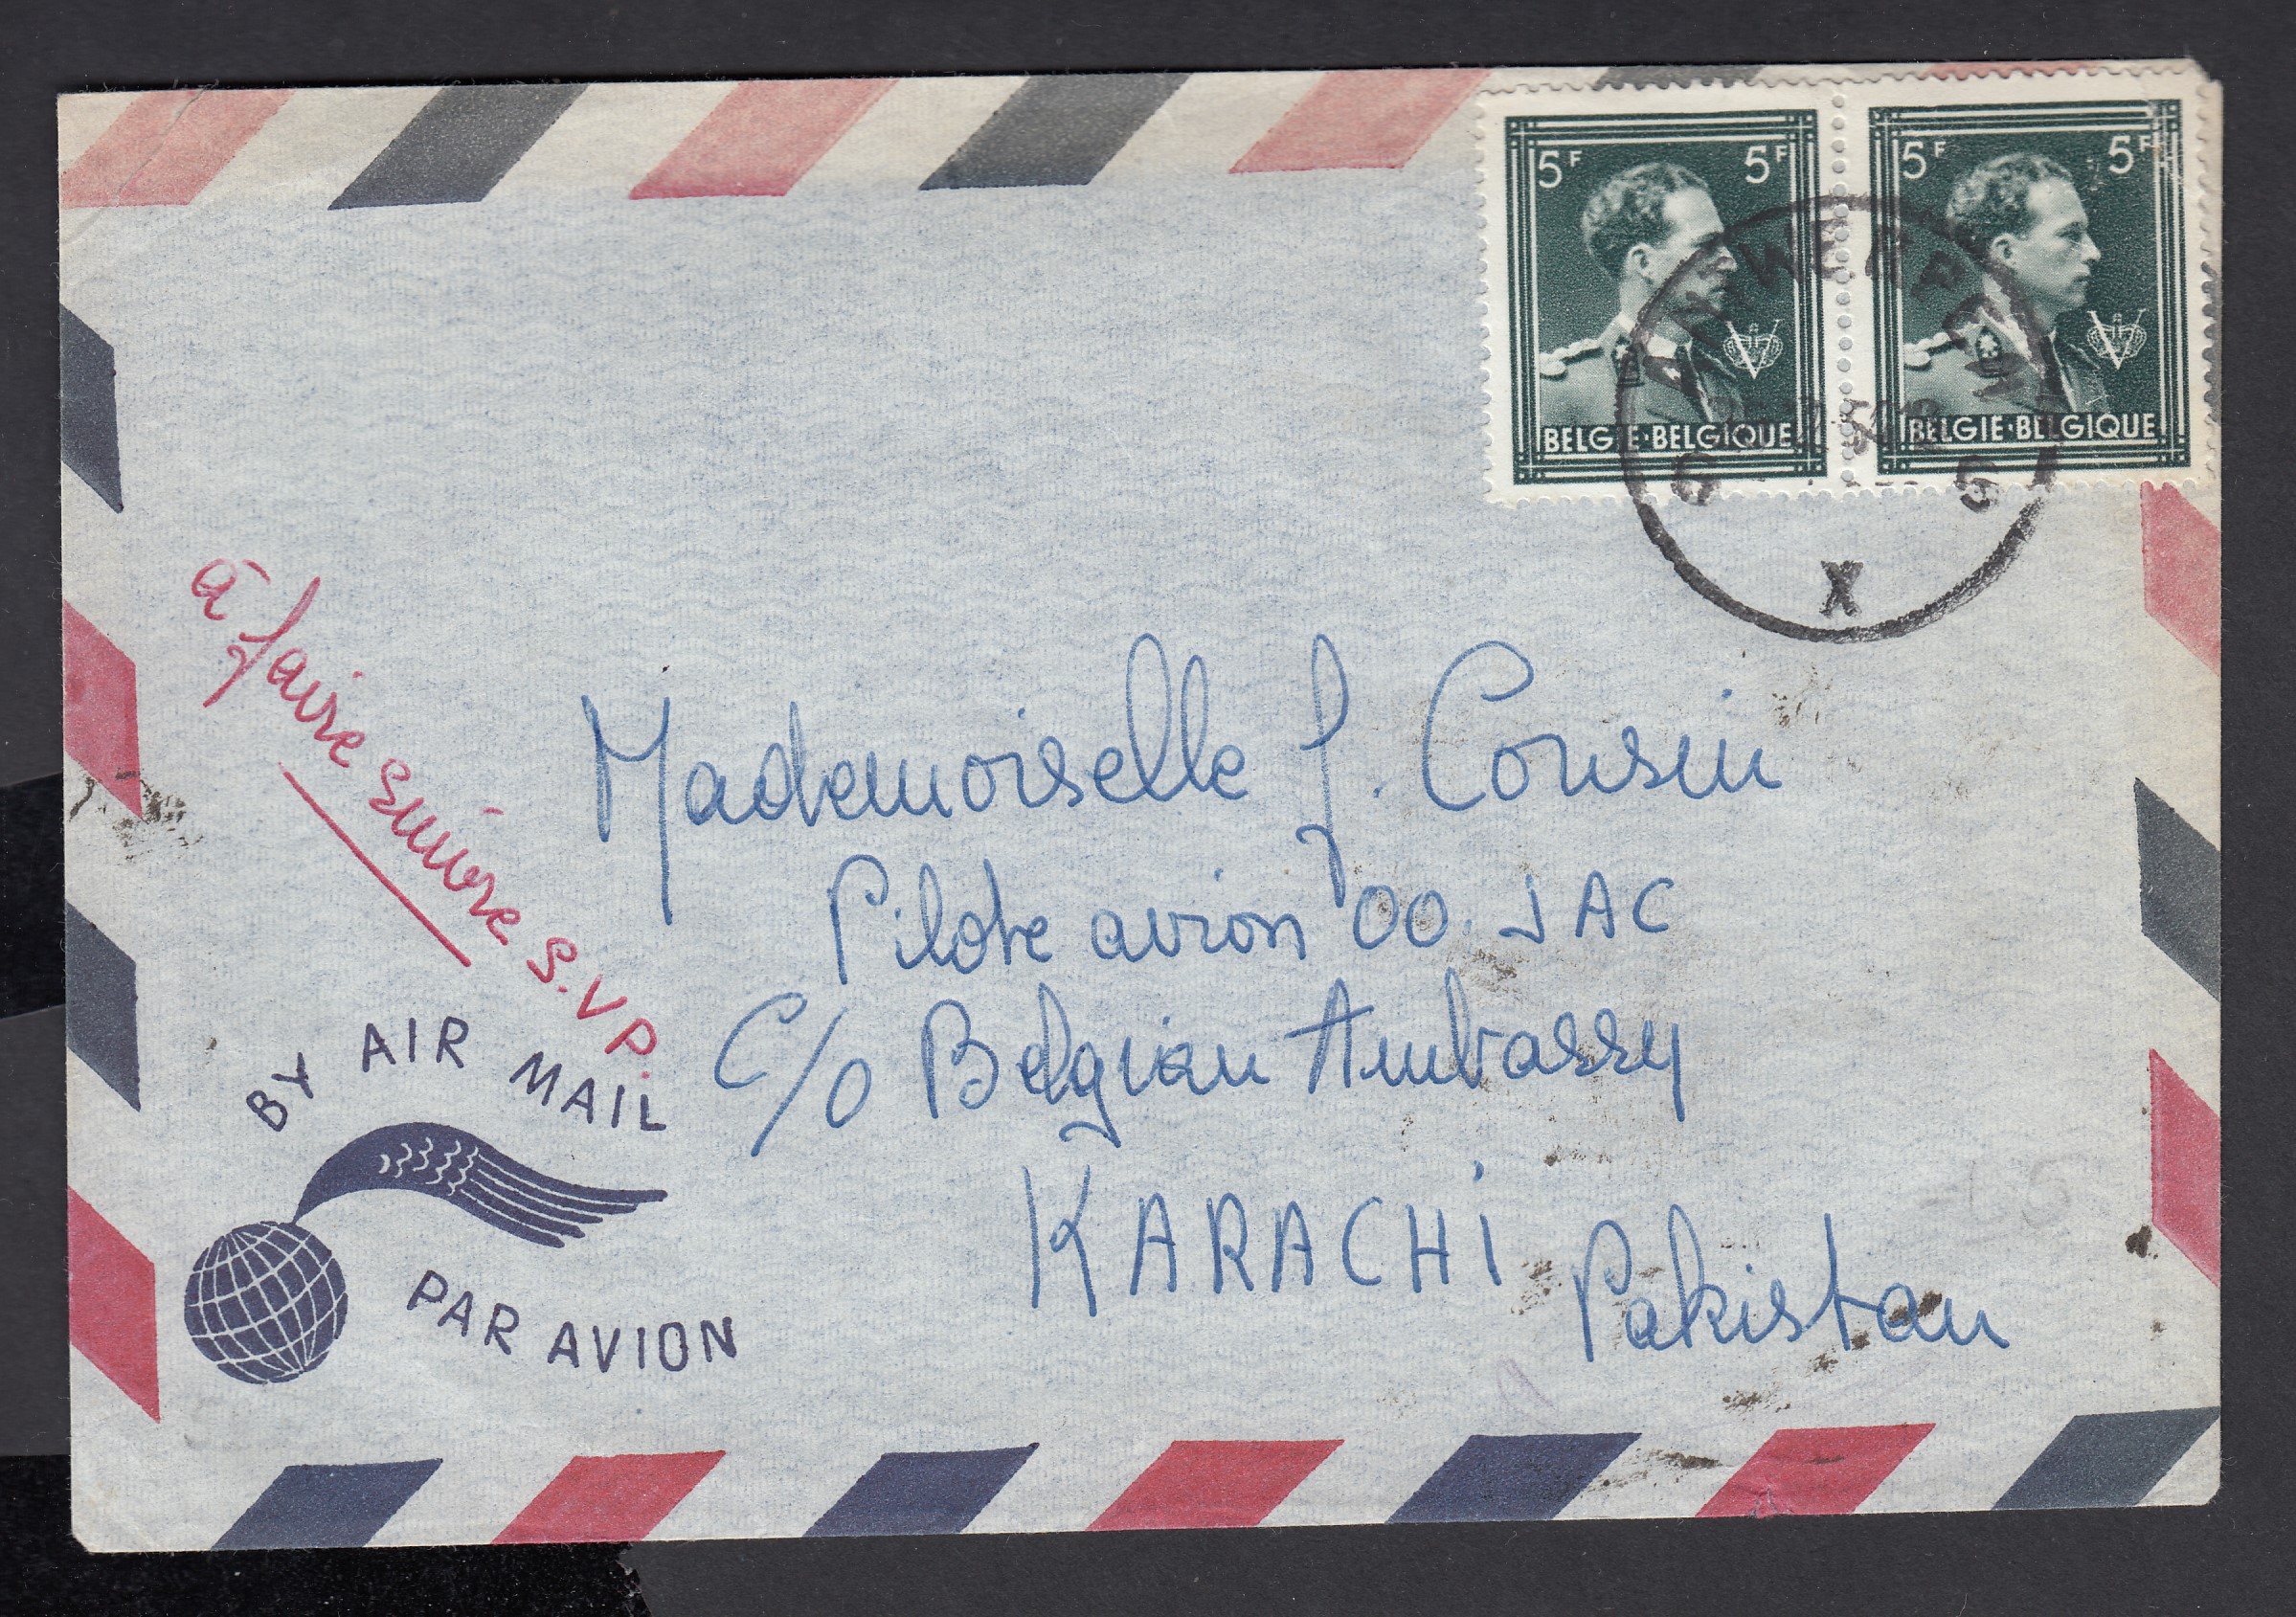 5F 5F
BELGIE·BELGIQUE
5F 5F
BELGIE·BELGIQUE
ANTWERPEN
X
à faire suivre S.V.P.
Mademoiselle J. Cousin
Pilote avion OO. JAC
C/O Belgian Ambassy
KARACHi
Pakistan
BY AIR MAIL
PAR AVION